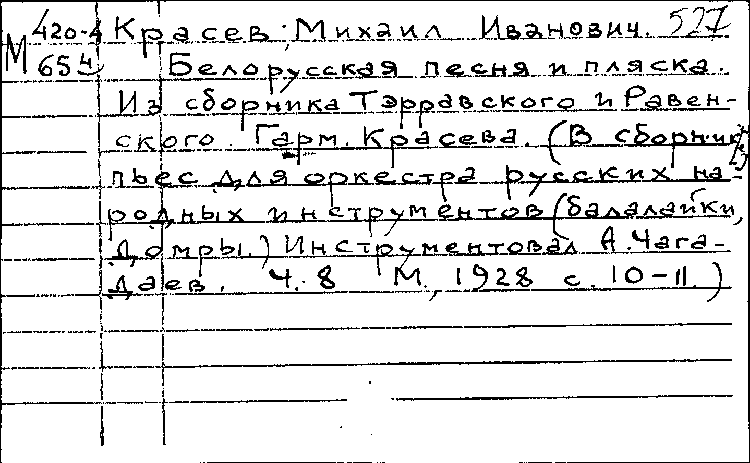 М 420-4 Красев, Михаил Иванович. 527
65 ч Белорусская песня и пляска.
Из сборника Тэрравского и Равен-
ского. Гарм. Красева. (В сборник
пьес для оркестра русских на-
родных инструментов (балалайки,
домры.) Инструментовал А. Чага-
даев. Ч. 8 М., 1928 с. 10-11.)